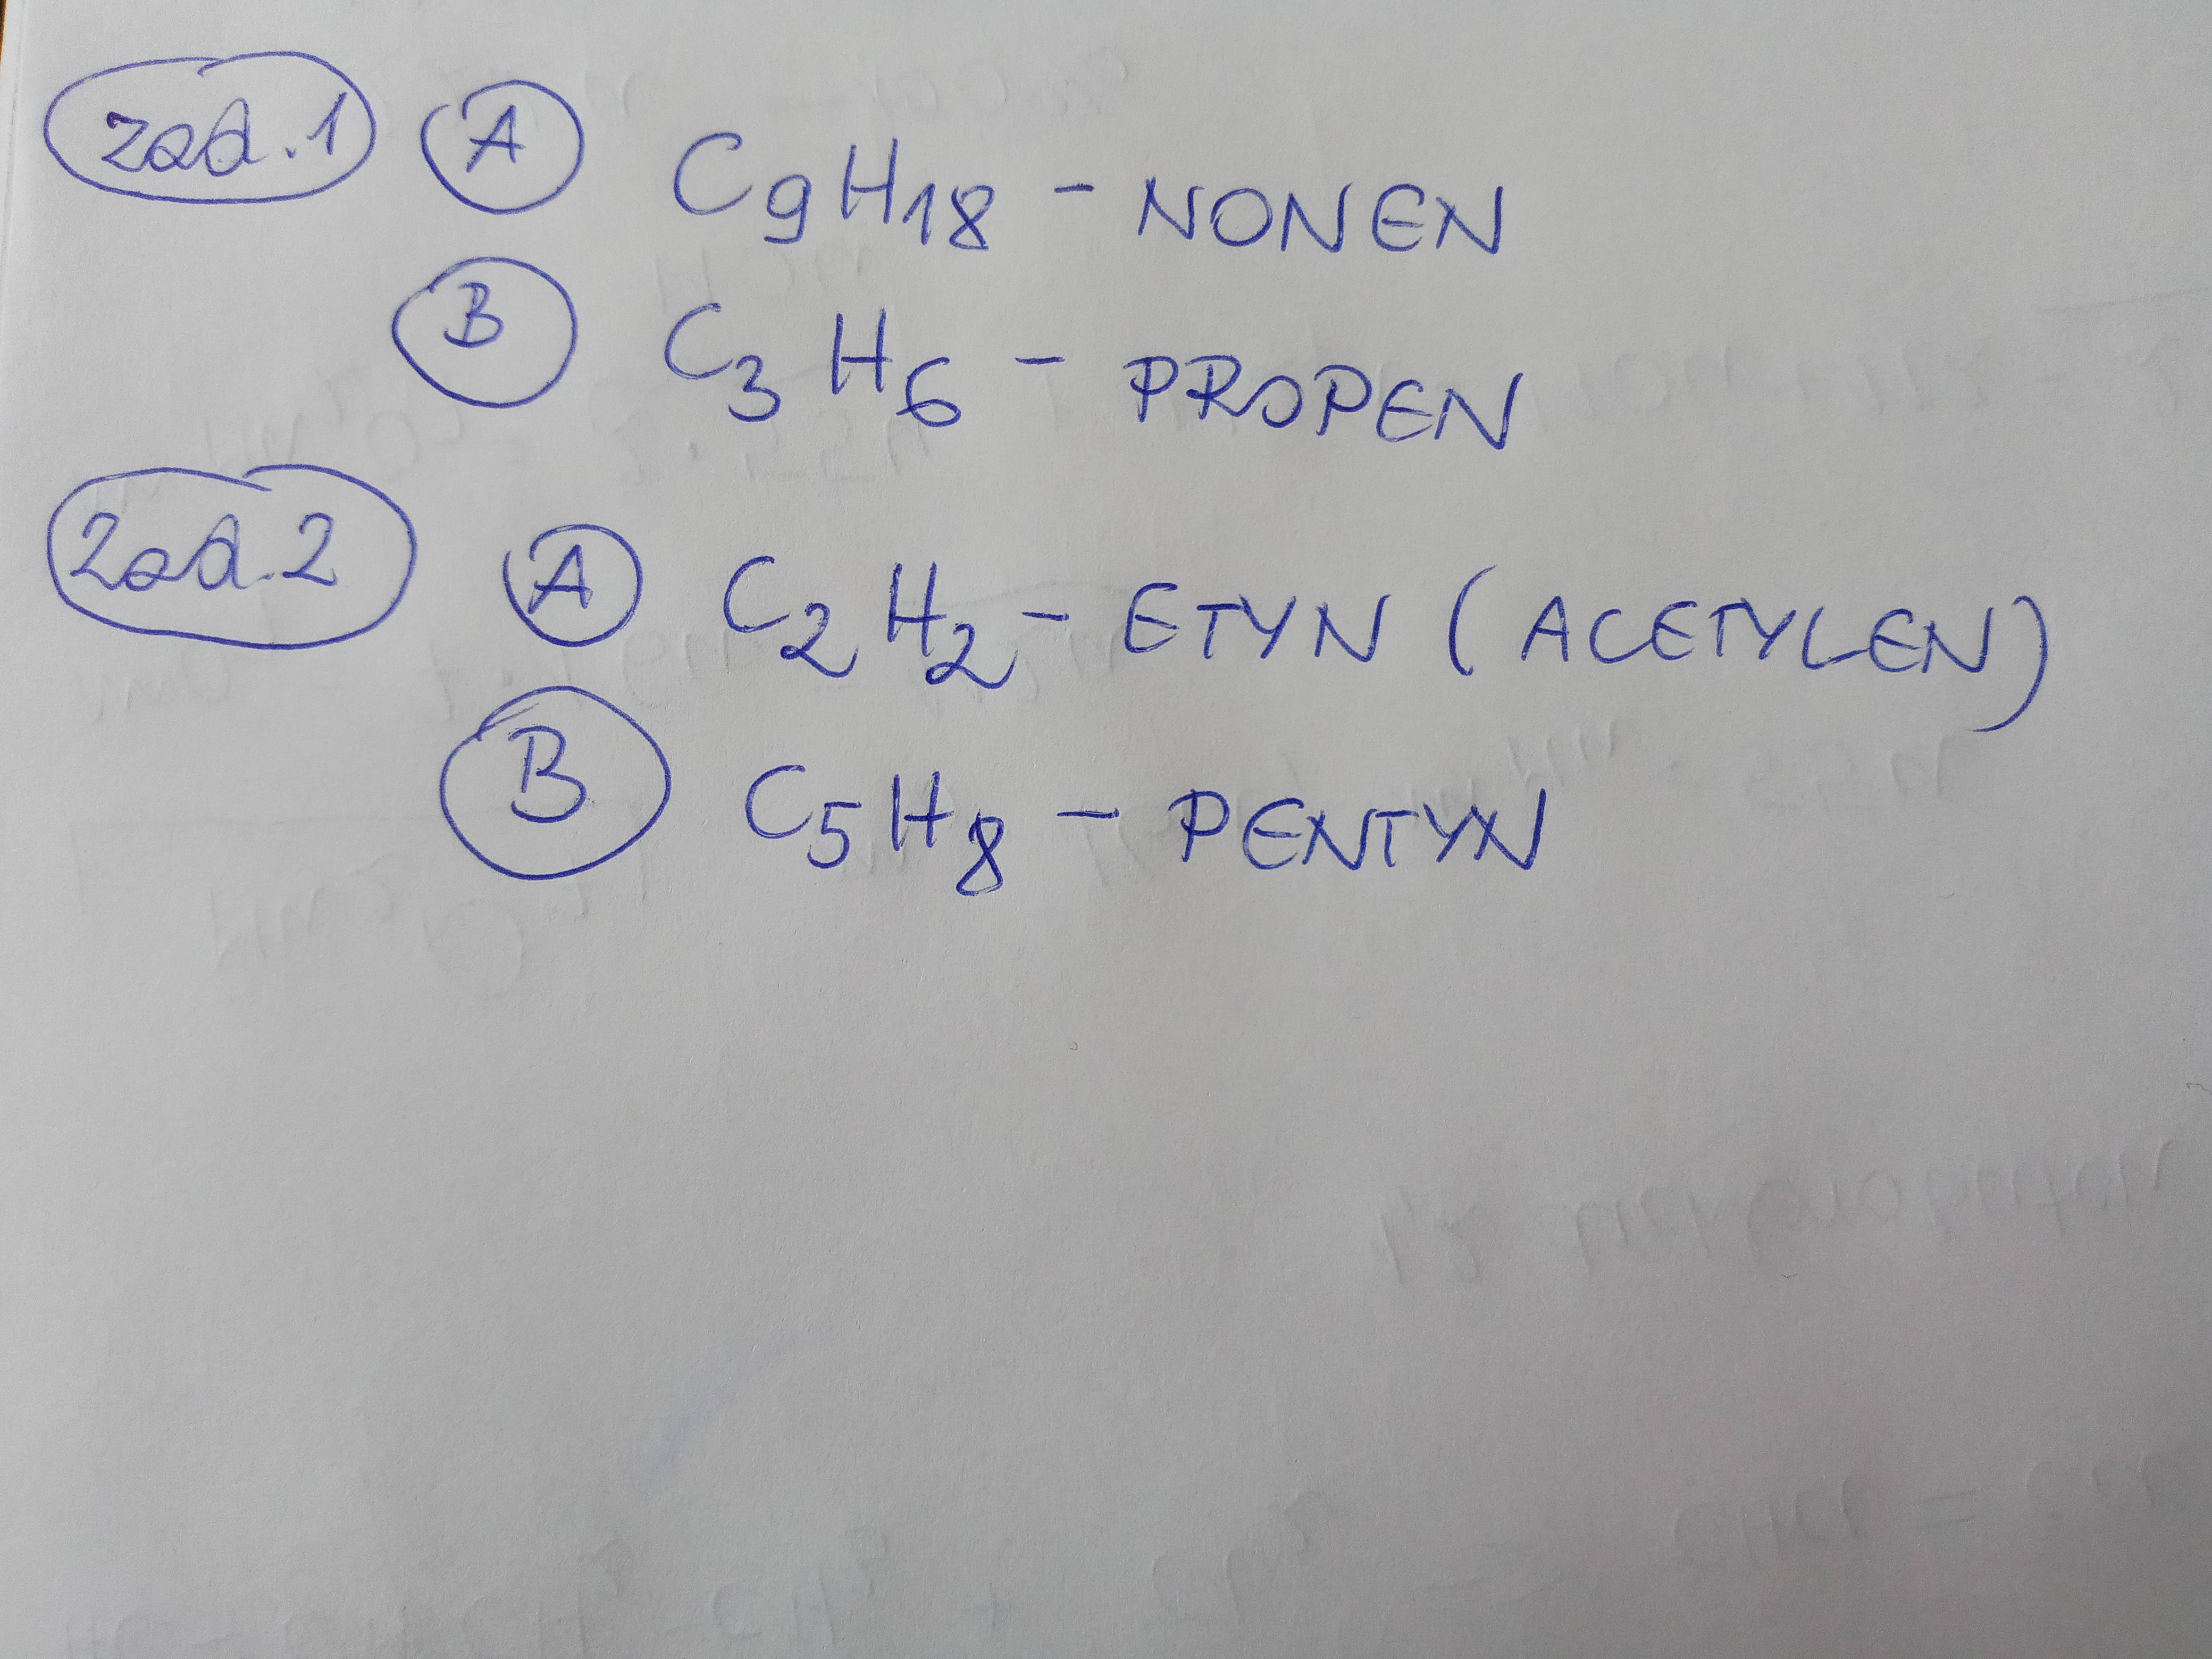 zad.1 A C9H18 - NONEN
B C3H6 - PROPEN
zad.2 A C2H2 - ETYN (ACETYLEN)
B C5H8 - PENTYN